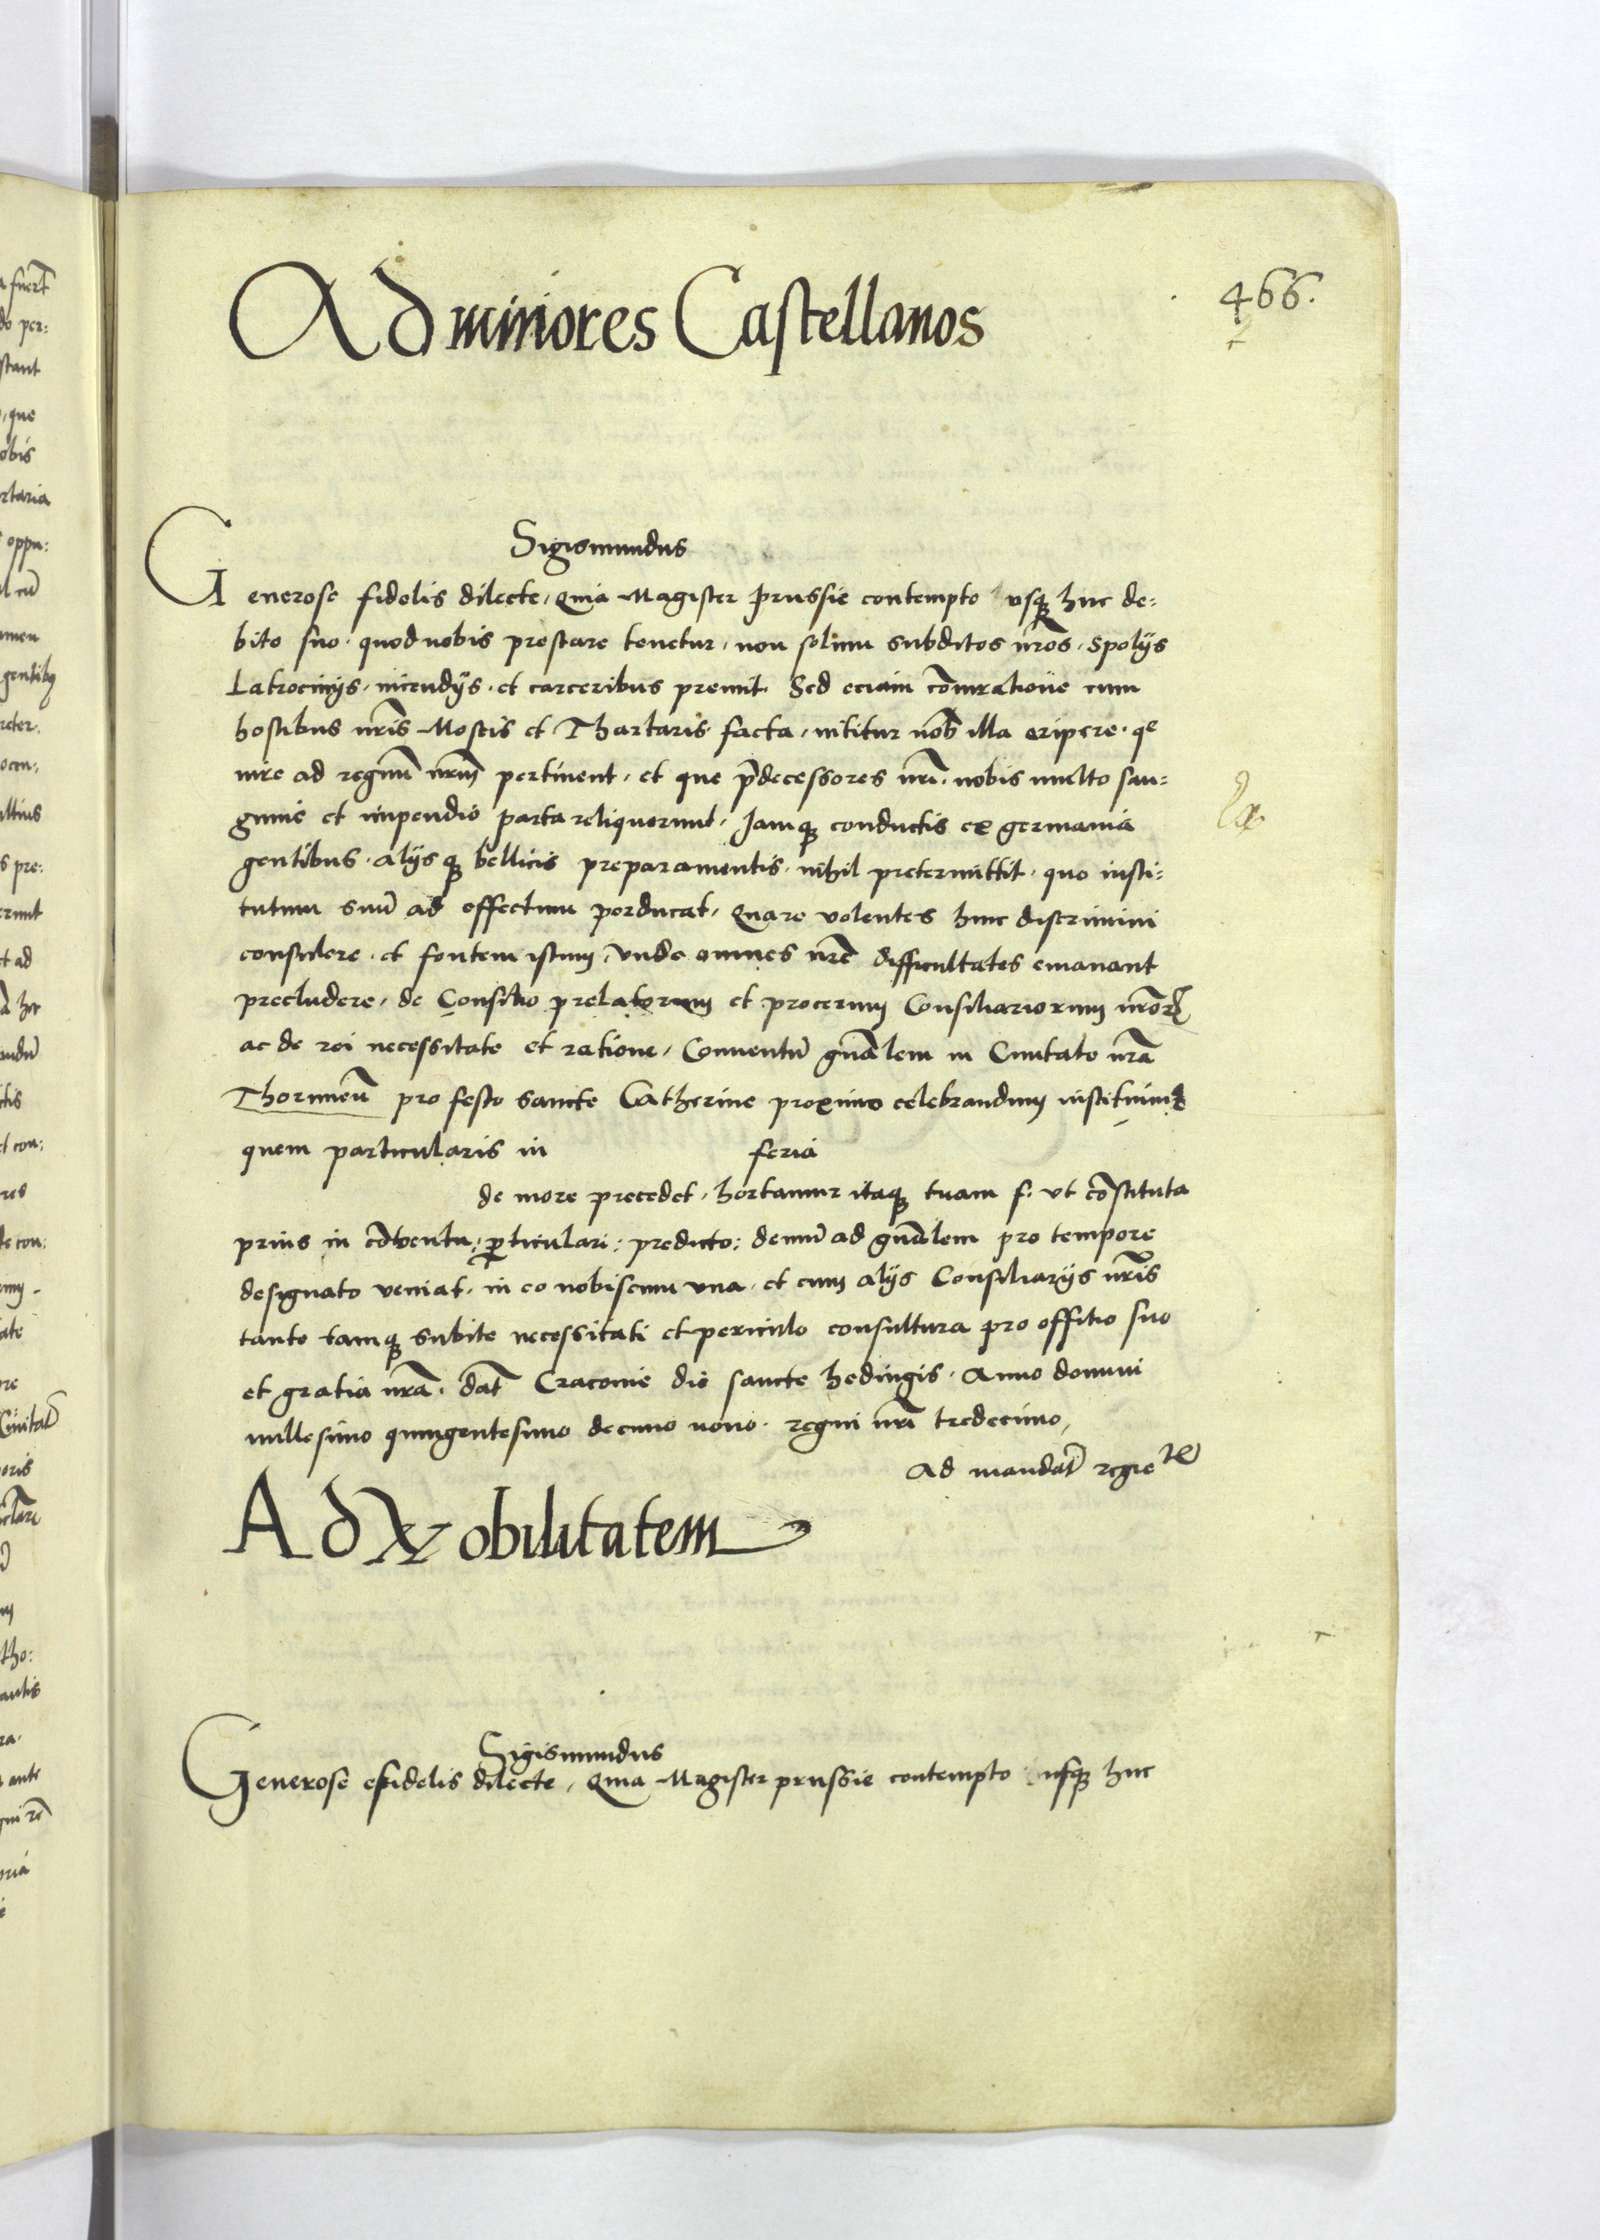 466.
Ad minores Castellanos
Sigismundus
Generose fidelis dilecte, Quia Magister prussie contempto usq huc de:
bito suo. quod nobis prestare tenetur, non solum subditos nros. Spolijs
Latrocinijs. incendijs. et carceribus premit. Sed eciam coniuratione cum
hostibus nris Moscis et Thartaris facta, nititur nob illa eripere. qe
iure ad regnu nrm pertinent, et que pdecessores nri. nobis multo san:
guine et impendio parta reliquerunt. Jamq conductis ex germania
gentibus. alijsq bellicis preparamentis. nihil pretermittit. quo insti:
tutum suu ad effectum perducat, Quare volentes huic discrimini
consulere. et fontem istum, unde omnes nre difficultates emanant
precludere, de Consilio prelatorum et procerum Consiliariorum nror
ac de rei necessitate et ratione, Conventu gnalem in Civitate nra
Thorunen pro festo sancte Catherine proximo celebrandum instituim
quem particularis in feria
de more precedet, hortamur itaq tuam f. ut constituta
prius in conventu: pticulari: predicto: demu ad gnalem pro tempore
designato veniat. in eo nobiscum una. et cum alijs Consiliarijs nris
tante tamq subite necessitati et periculo consultura pro offitio suo
et gratia nra. dat Cracovie die sancte hedvigis. Anno domini
millesimo quingentesimo decimo nono. regni nri tredecimo,
Ad mandat regie
Ad Nobilitatem
Sigismundus
Generose fidelis dilecte, Quia Magister prussie contempto usq huc